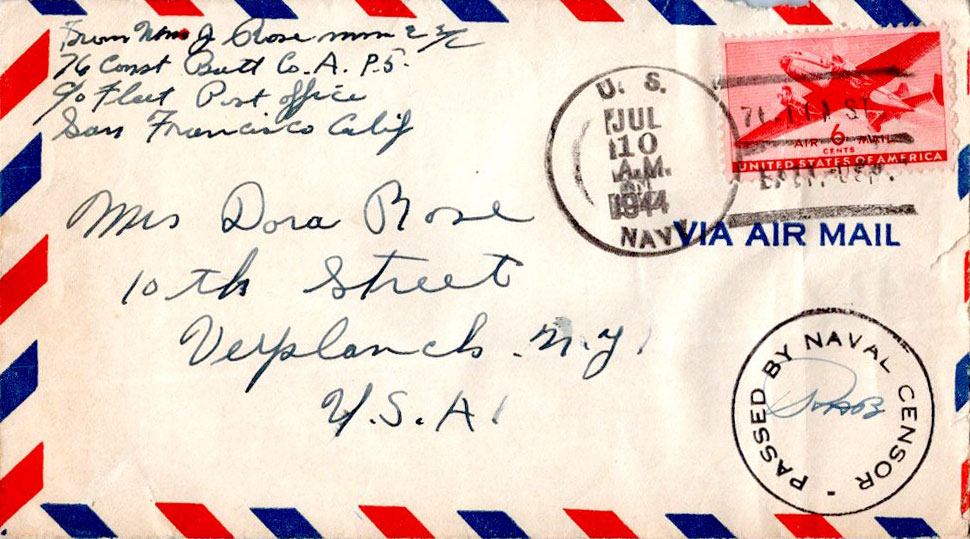 From Wm J Rose mm 2/c
76 Const Batt Co. A. P.5.
c/o Fleet Post office
San Francisco Calif
U. S.
JUL
10
A.M.
1944
NAVY
AIR 6 MAIL
CENTS
UNITED STATES OF AMERICA
VIA AIR MAIL
Mrs Dora Rose
10th Street
Verplanck N.Y.
U.S.A.
PASSED BY NAVAL CENSOR